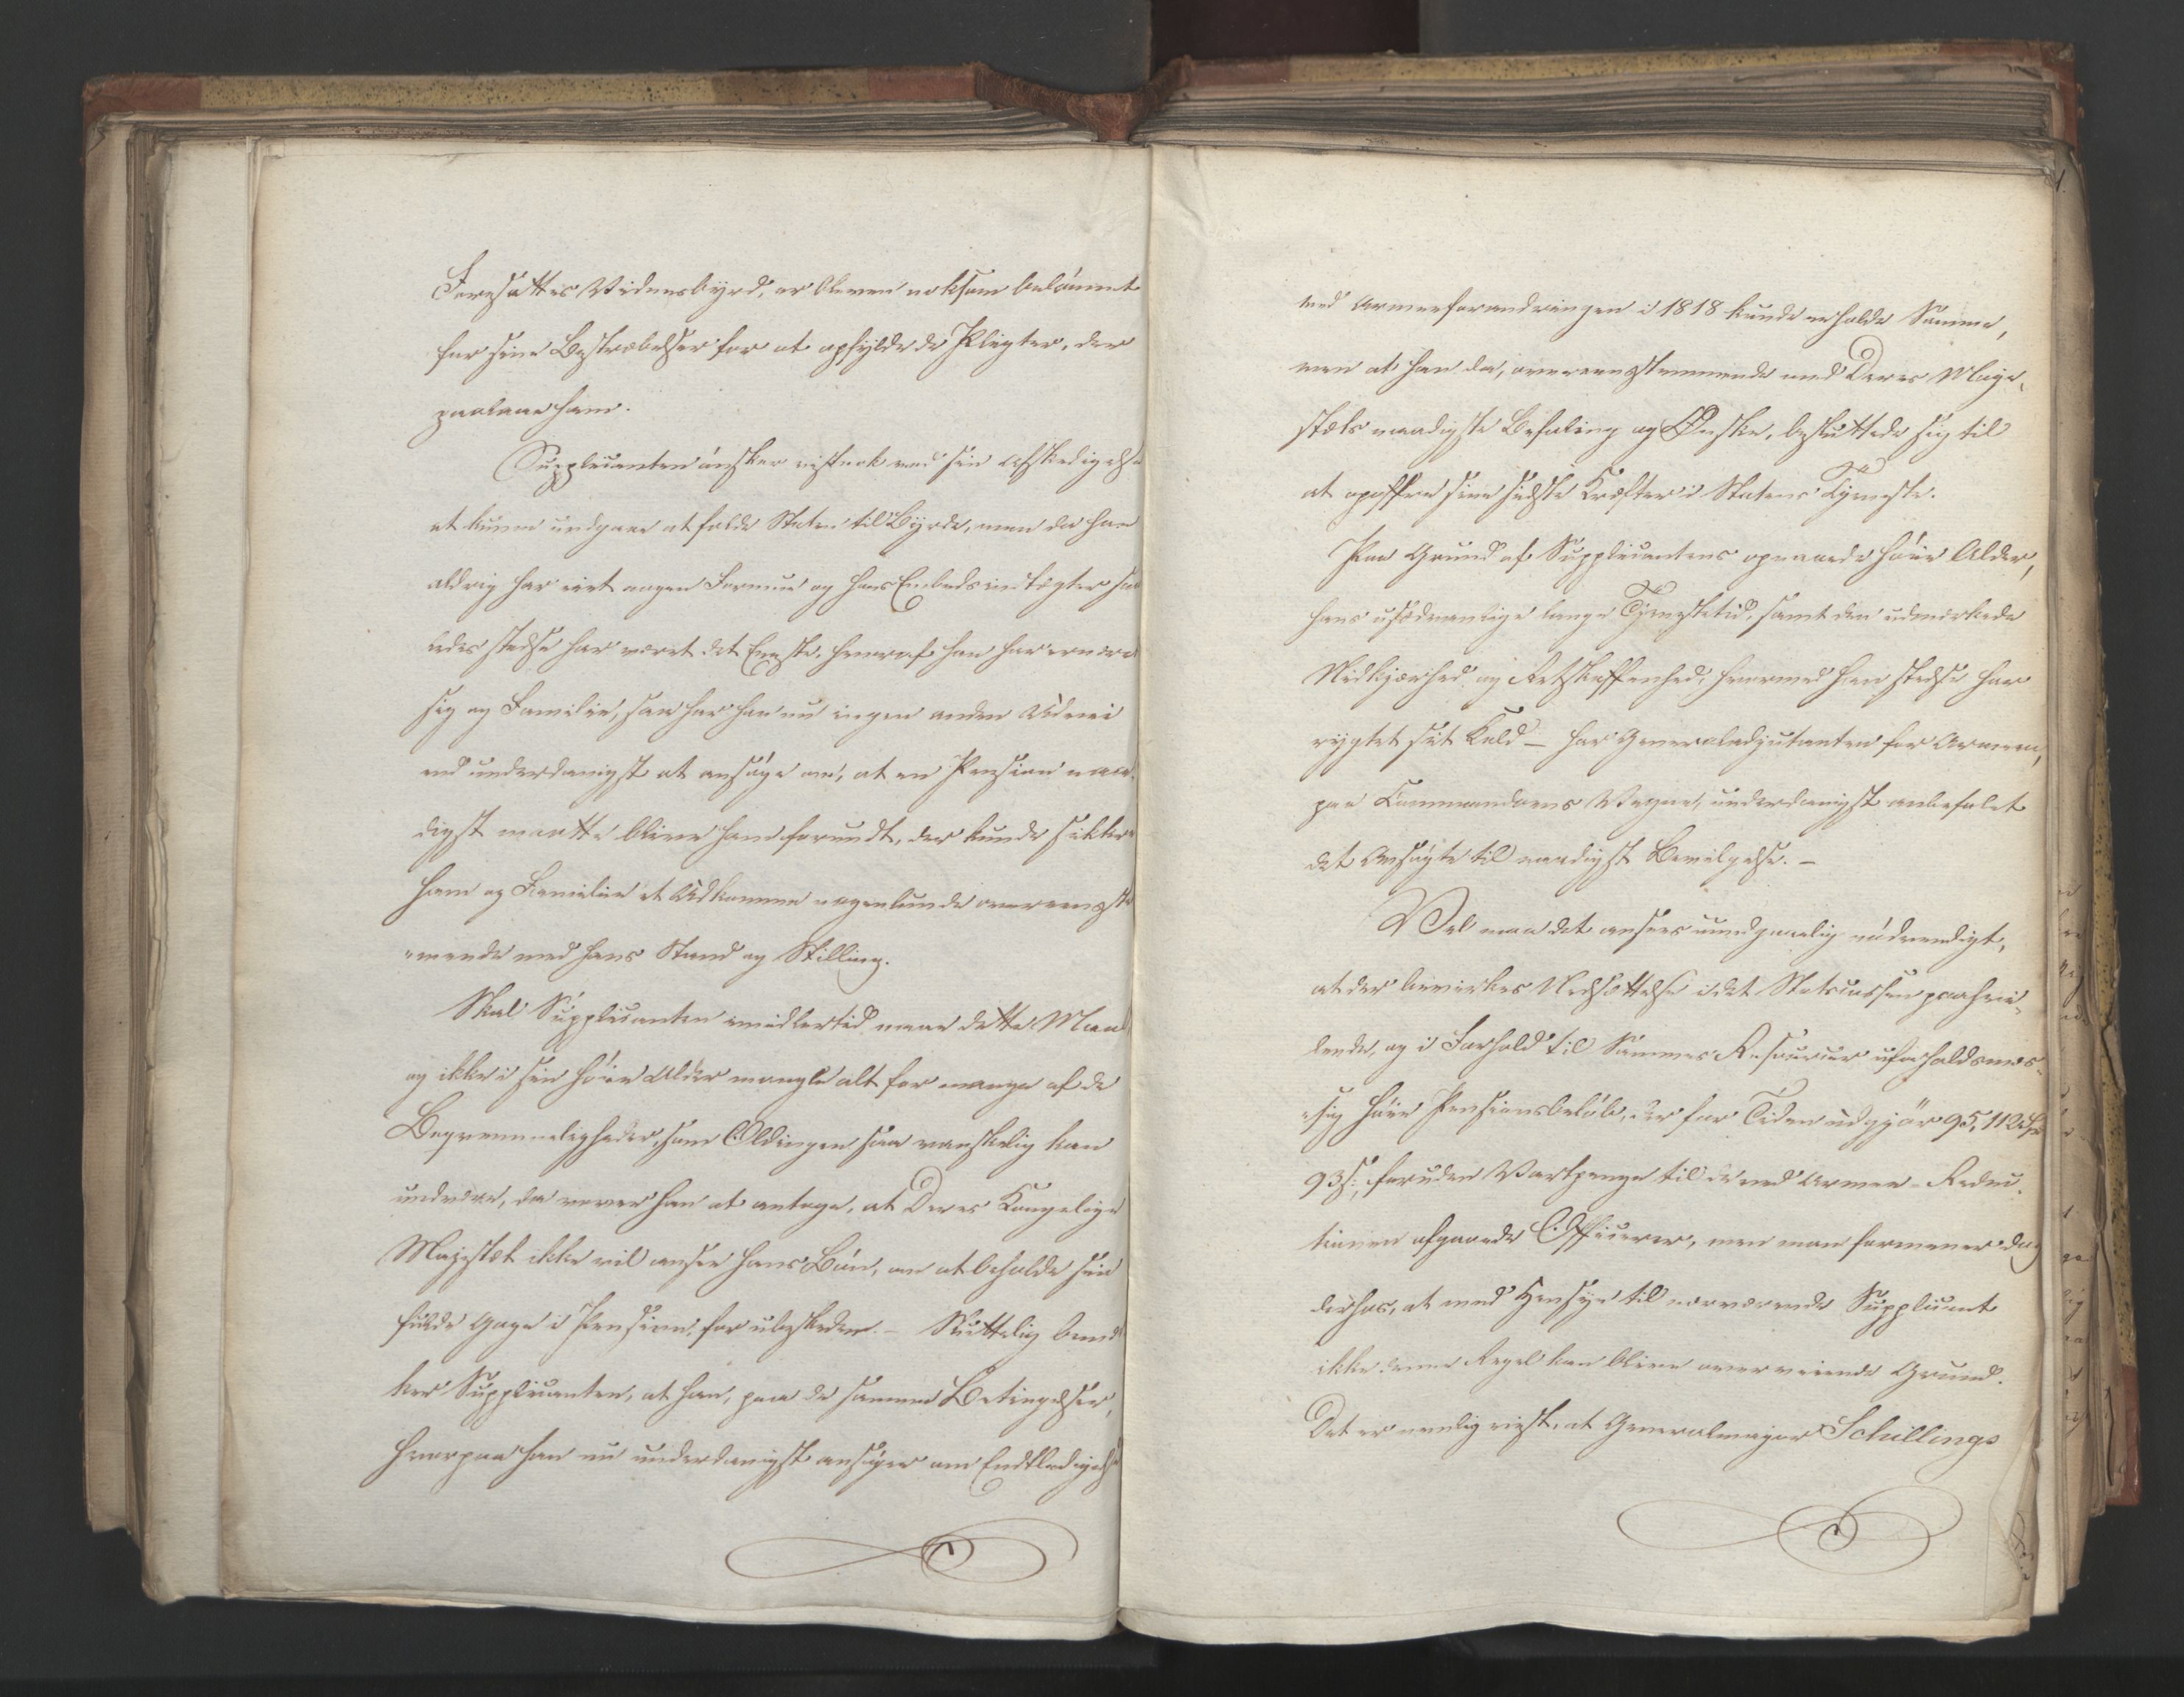 Foresattes Vidnesbyrd, er bleven noksom belønnet
for sine Bestræbelser for at opfylde de Pligter, der
paalaae ham.
Supplicanten ønsker vistnok ved sin Afskedigelse
at kunne undgaae at falde Staten til Byrde, men da han
aldrig har eiet nogen Formue og hans Embedsindtægter saa-
ledes stedse har været det Eneste, hvoraf han har ernæret
sig og Familie, saa har han nu ingen anden Udvei
end underdanigst at ansøge om, at en Pension naa-
digst maatte blive ham forundt, der kunde sikkre
ham og Familie et Udkomme nogenlunde overeenst-
emmende med hans Stand og Stilling.
Skal Supplicanten imidlertid naae dette Maal
og ikke i sin høie Alder mangle alt for mange af de
Beqvemmeligheder, som Oldingen saa vanskelig kan
undvære, da vover han at antage, at Deres Kongelige
Majestæt ikke vil ansee hans Bøn, om at beholde sin
fulde Gage i Pension, for ubeskeden. – Sluttelig bemær-
ker Supplicanten, at han, paa de samme Betingelser,
hvorpaa han nu underdanigst ansøger om Endtledigelse
ved Armeeforandringen i 1818 kunde erholde Samme,
men at han da, overeenstemmende med Deres Maje-
stæts naadigste Befaling og Ønske, besluttede sig til
at opoffre sine sidste Kræfter i Statens Tjeneste.
Paa Grund af Supplicantens opnaaede høie Alder,
hans usædvanlige lange Tjenestetid, samt den udmærkede
Nidkjærhed og Retskaffenhed, hvormed han stedse har
rygtet sit Kald – har Generaladjutanten for Armeen,
paa Commandoens Vegne, underdanigst anbefalet
det Ansøgte til naadigst Bevilgelse. –
Vel maa det ansees uundgaaelig nødvendigt,
at der bevirkes Nedsættelse i det Statscassen paahvi-
lende, og i Forhold til Sammes Resourcer uforholdsmæs-
sig høie Pensionsbeløb, der for Tiden udgjør 95,112 Sp
93 s:, foruden Vartpenge til de ved Armee-Reduc-
tionen afgaaede Officierer, men man formener dog
derhos, at med Hensyn til nærværende Supplicant
ikke denne Regel kan blive overveiende Grund.
Det er nemlig vist, at Generalmajor Schillings